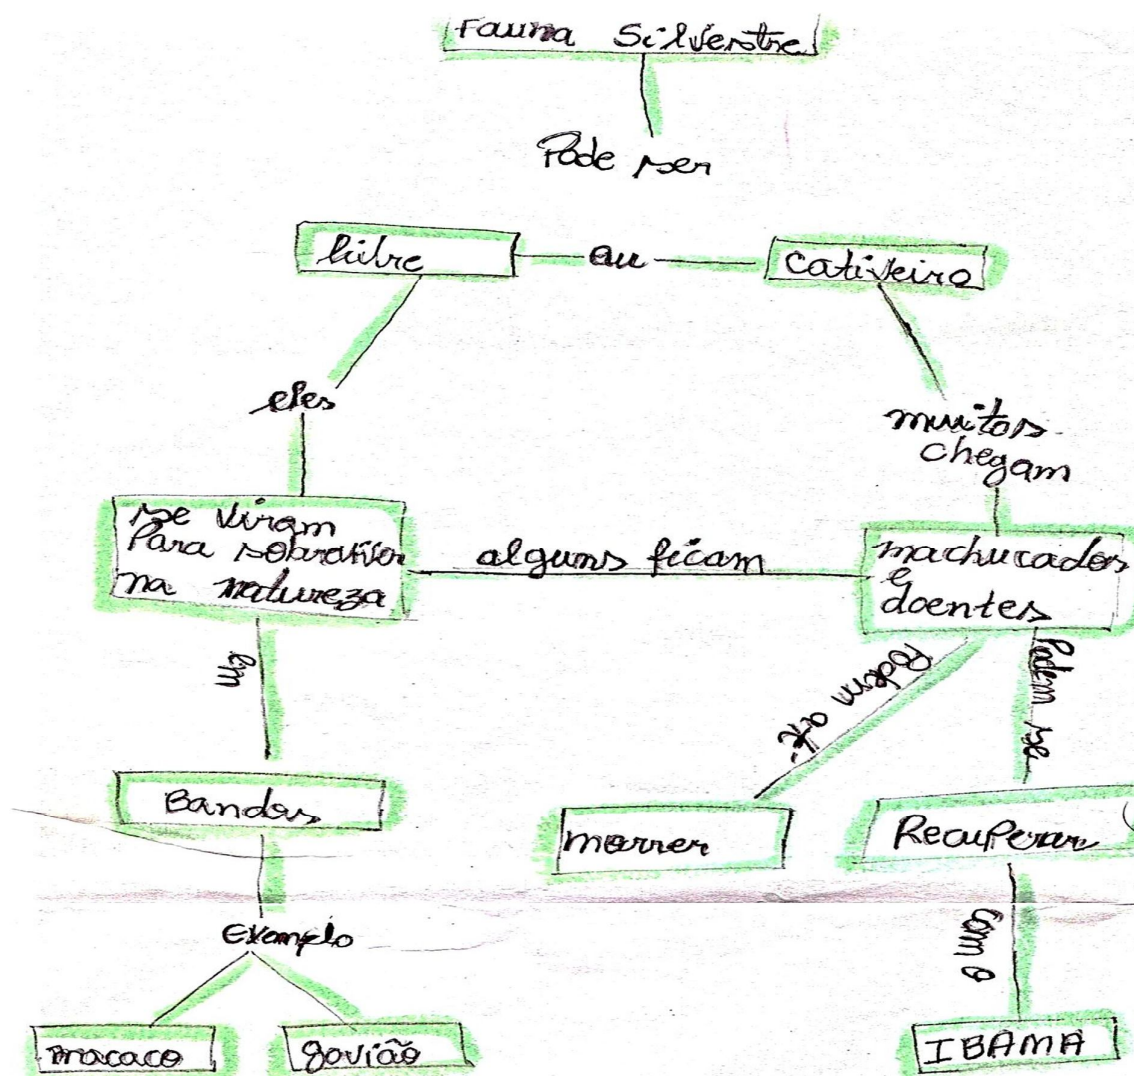 Fauna Silvestre
Pode ser
livre
ou
cativeiro
eles
muitos
chegam
se viram
Para sobreviver
na natureza
alguns ficam
machucados
e
doentes
em
Podem até
Podem se
Bandos
morrer
Recuperar
Exemplo
com o
macaco
gavião
IBAMA